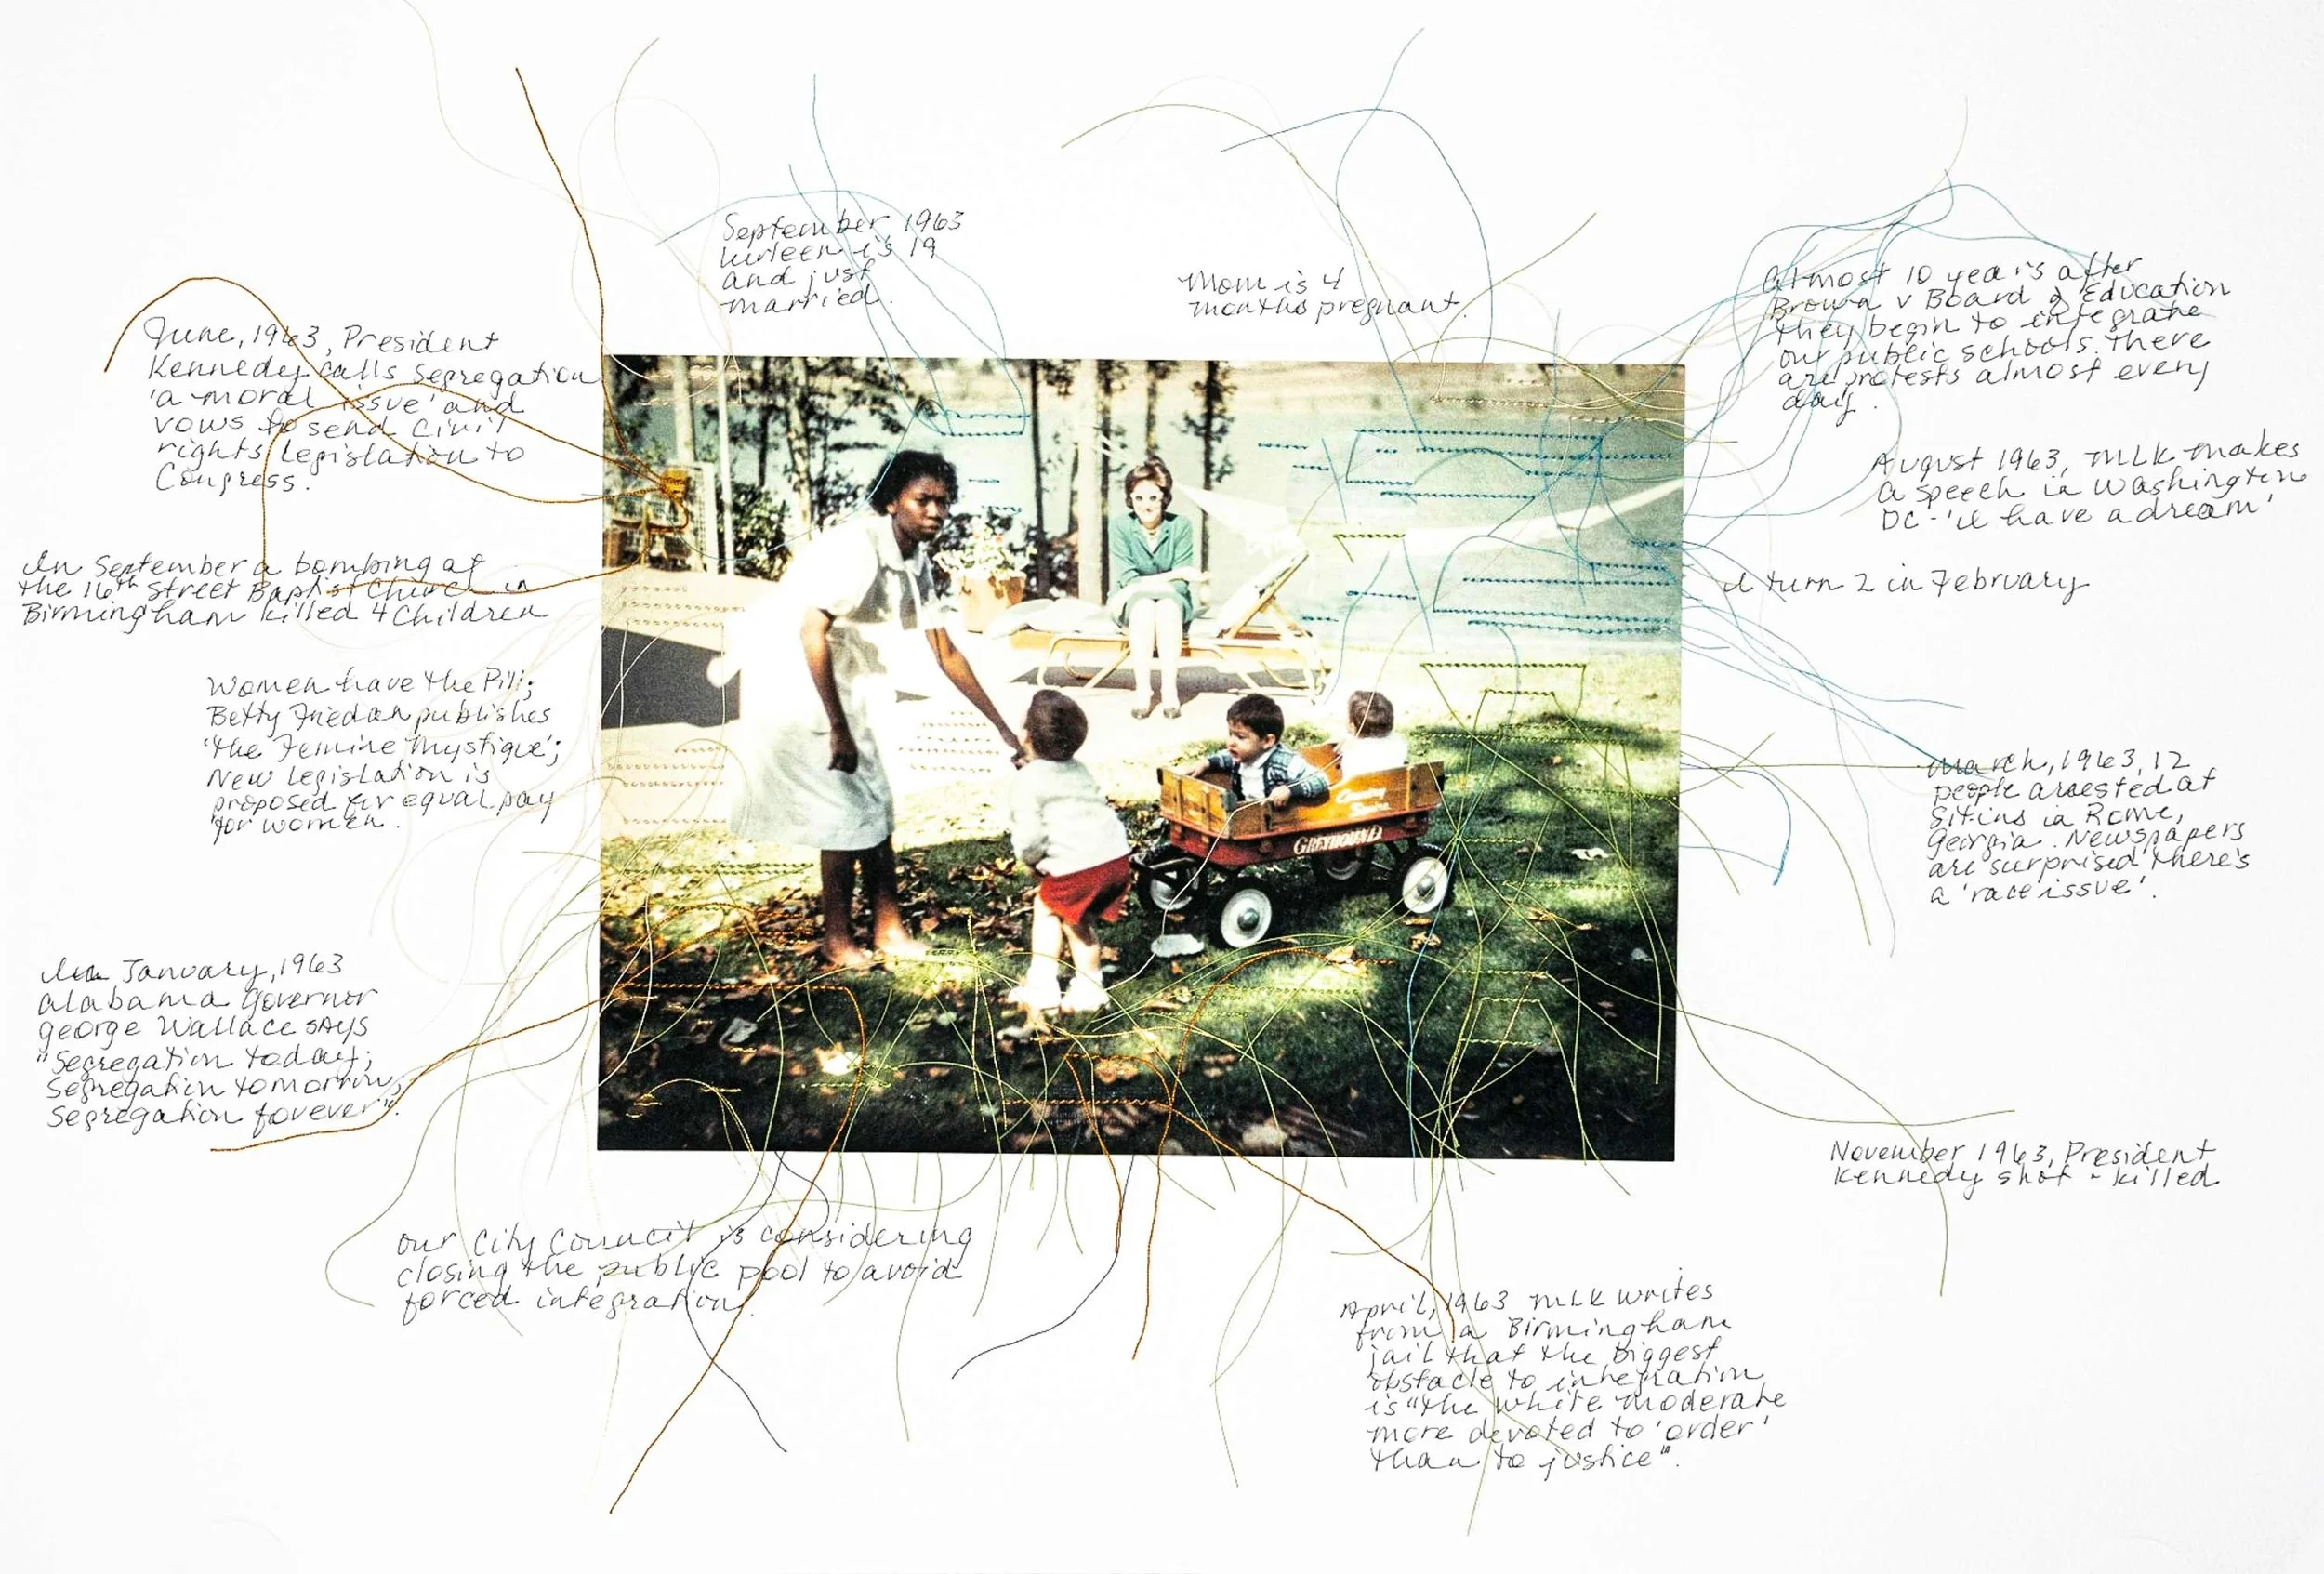 September, 1963
is 19
and just
married.
Mom is 4
months pregnant.
Almost 10 years after
Brown v Board of Education
they begin to integrate
our public schools. There
are protests almost every
day.
June, 1963, President
Kennedy calls segregation
'a moral issue' and
vows to send civil
rights legislation to
Congress.
August 1963, MLK makes
a speech in Washington
DC - 'I have a dream'
In September a bombing at
the 16th Street Baptist Church in
Birmingham killed 4 children
I turn 2 in February
Women have the Pill;
Betty Friedan publishes
'the Femine Mystique';
New legislation is
proposed for equal pay
for women.
March, 1963, 12
people arrested at
sitins in Rome,
Georgia. Newspapers
are surprised there's
a 'race issue'.
GREYHOUND
In January, 1963
Alabama Governor
George Wallace says
"Segregation today;
Segregation tomorrow;
Segregation forever".
November 1963, President
Kennedy shot - killed
our City Council is considering
closing the public pool to avoid
forced integration.
April, 1963 MLK writes
from a Birmingham
jail that the biggest
obstacle to integration
is "the white moderate
more devoted to 'order'
than to justice".